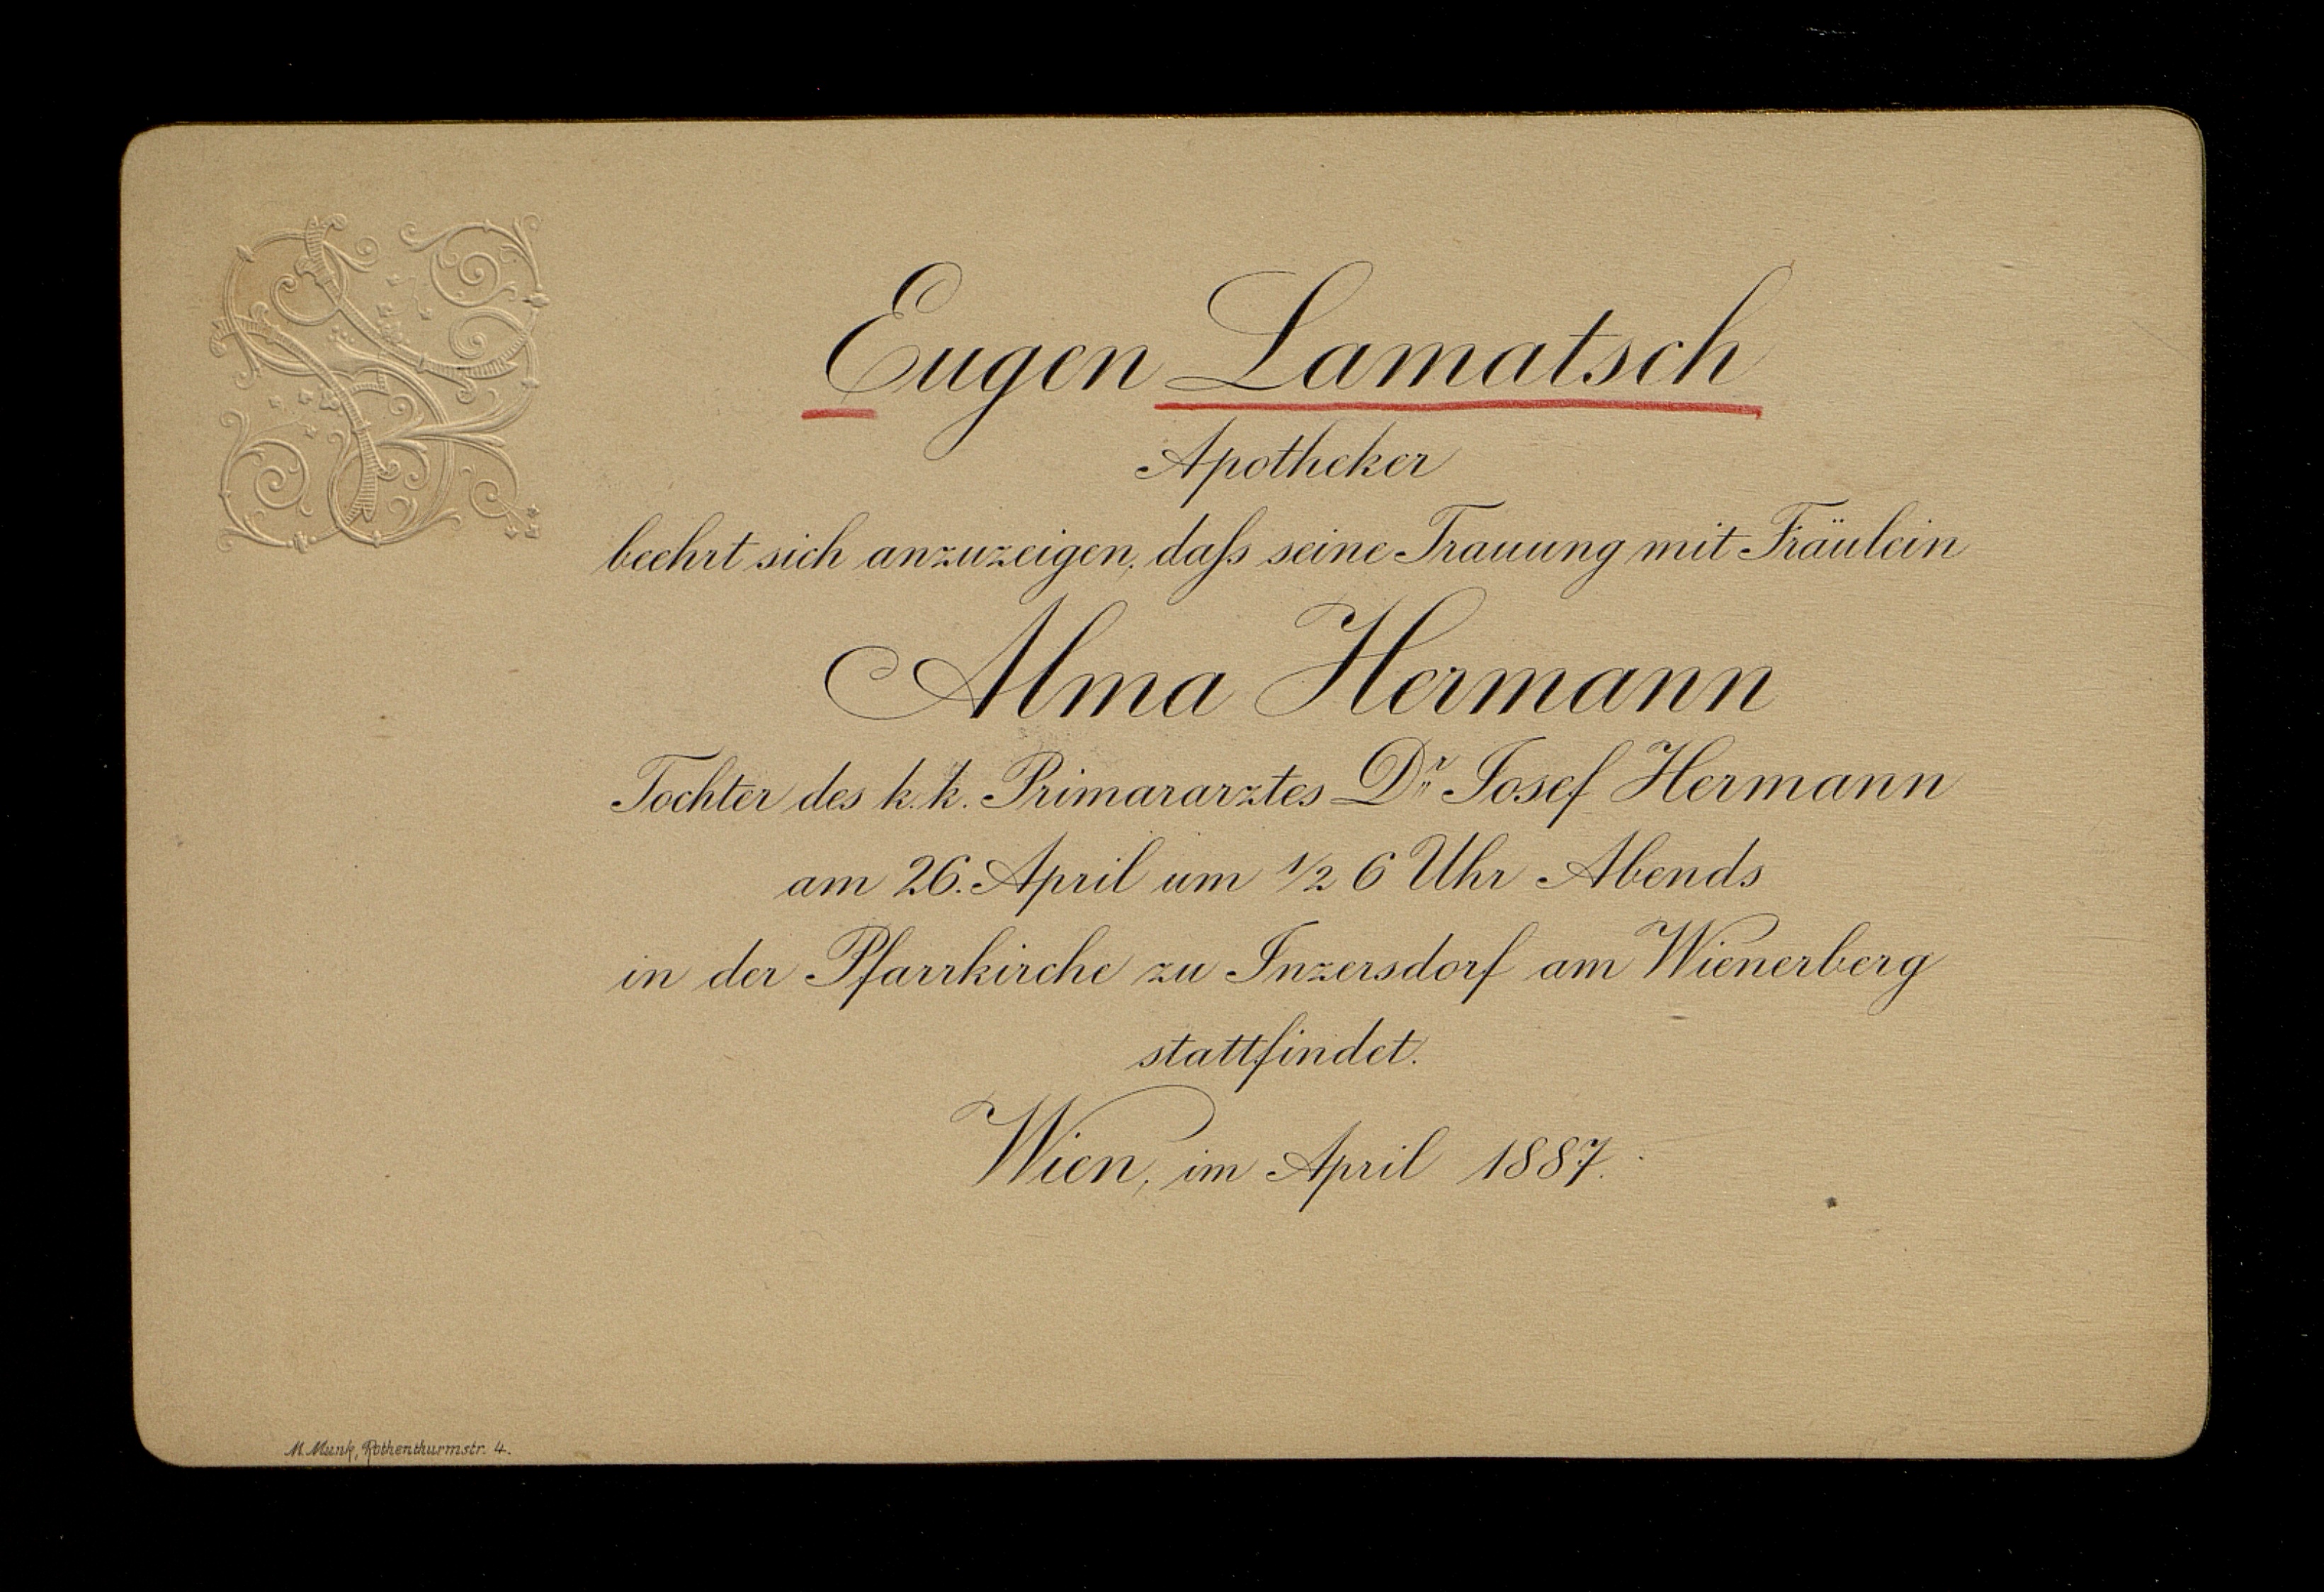 Eugen Lamatsch
Apotheker
beehrt sich anzuzeigen, daſs seine Trauung mit Fräulein
Alma Hermann
Tochter des k. k. Primararztes Dr. Josef Hermann
am 26. April um ½ 6 Uhr Abends
in der Pfarrkirche zu Inzersdorf am Wienerberg
stattfindet.
Wien, im April 1887.
M. Munk, Rothenthurmstr. 4.